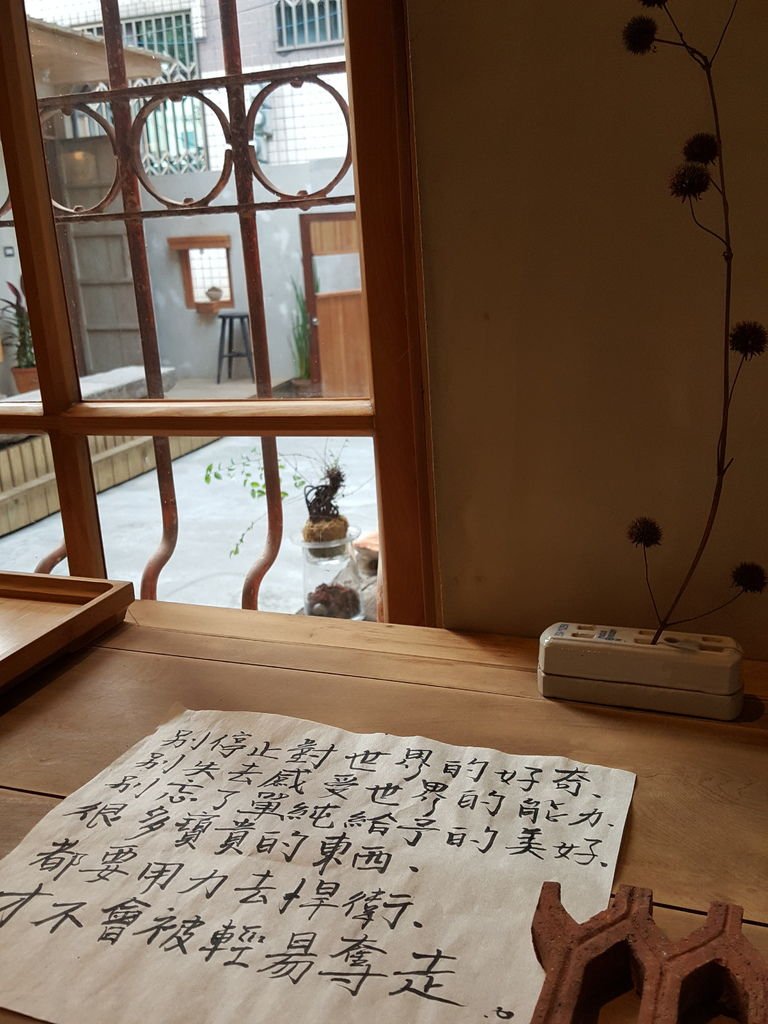 別停止對世界的好奇、
別失去感受世界的能力、
別忘了單純給予的美好、
很多寶貴的東西、
都要用力去捍衛、
才不會被輕易奪走。